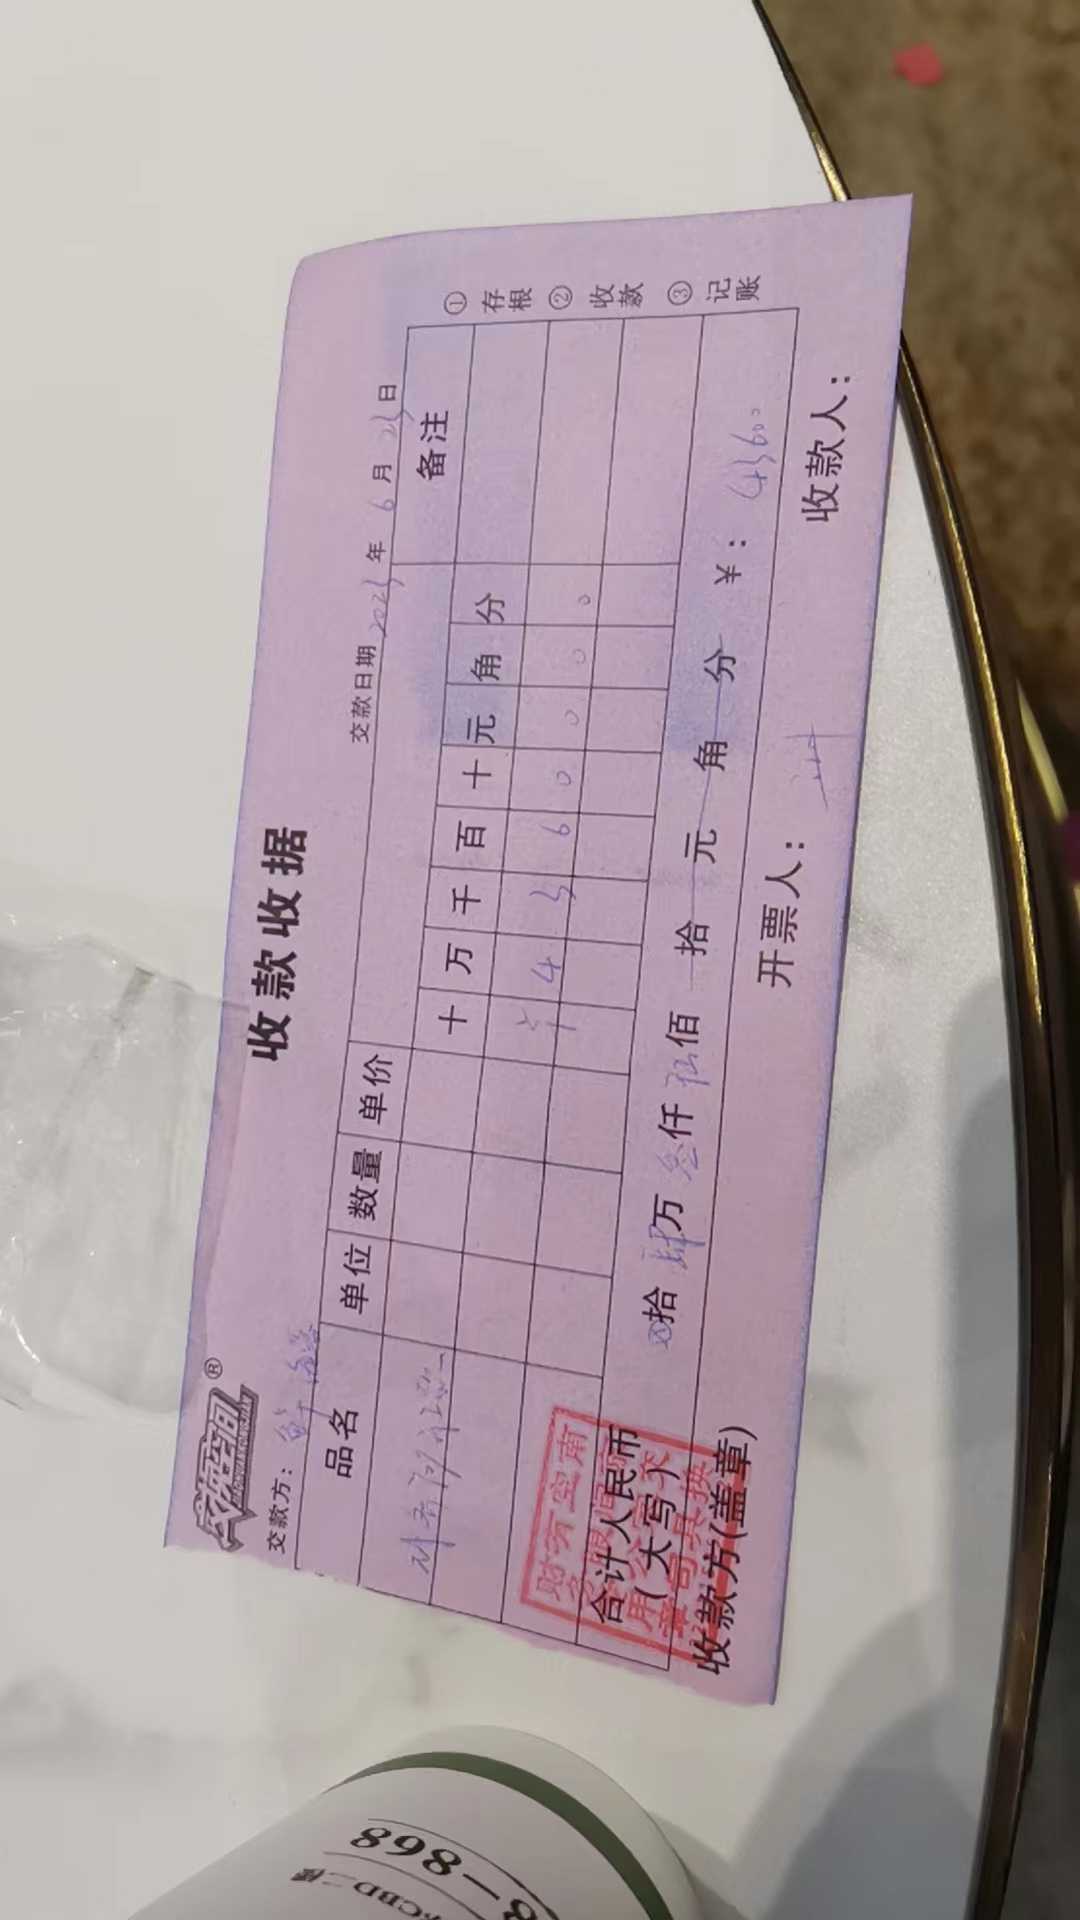 交换空间®
收款收据
交款方：
交款日期 2023 年 6 月 23 日
品名 单位 数量 单价 十 万 千 百 十 元 角 分 备注
¥ 4 3 6 0 0 0 0
合计人民币(大写) ⊗拾 肆万 叁仟 陆佰 拾 元 角 分 ¥：43600
收款方(盖章) 开票人： 收款人：
①存根 ②收款 ③记账
8-868
CBD二楼